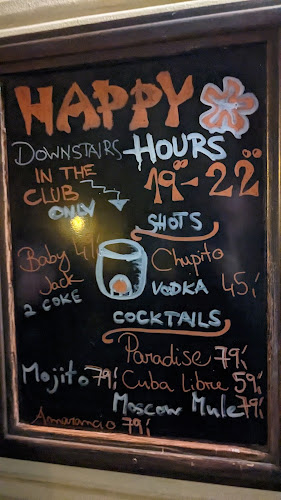 HAPPY
DOWNSTAIRS HOURS
IN THE
CLUB 19°°-22°°
ONLY
SHOTS
Baby 47,-
Jack
2 COKE
Chupito
VODKA 45,-
COCKTAILS
Paradise 79,-
Mojito 79,- Cuba libre 59,-
Moscow Mule 79,-
Amarancio 79,-